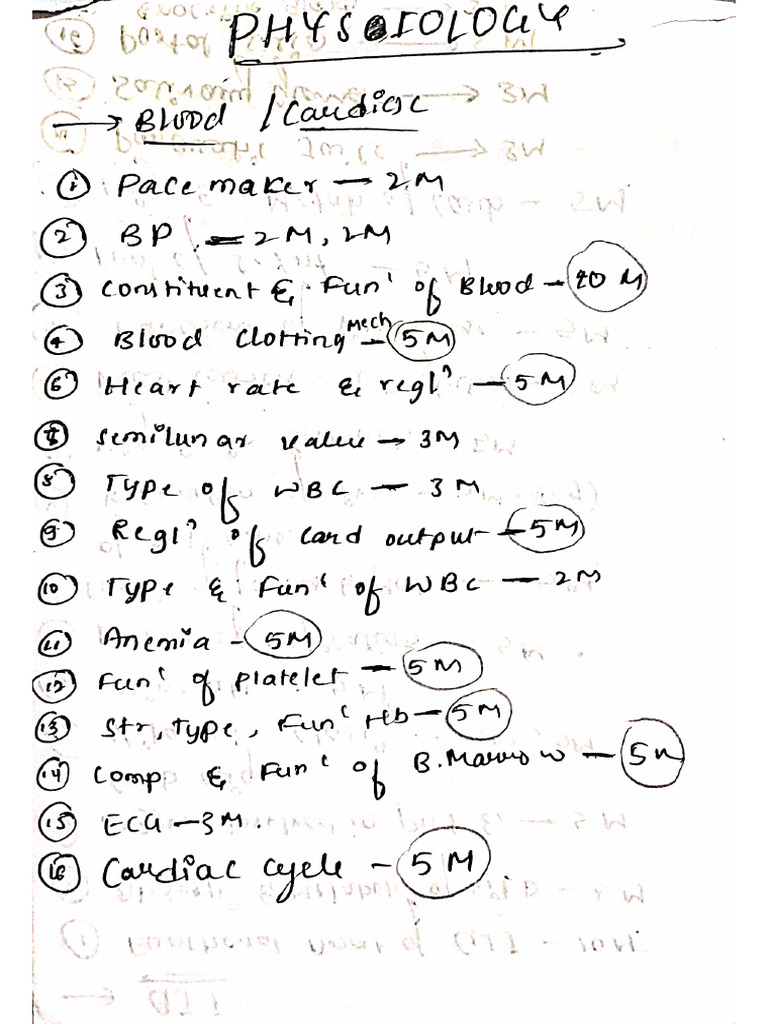 PHYSIOLOGY
→ Blood / Cardiac
① Pacemaker — 2M
② BP — 2M, 2M
③ Constituent & Funⁿ of Blood — 20 M
④ Blood Clotting Mech — 5M
⑥ Heart rate & reglⁿ — 5M
semilunar value → 3M
⑧ Type of WBC — 3M
⑨ Reglⁿ of card output — 5M
⑩ Type & Funⁿ of WBC — 2M
⑪ Anemia - 5M
⑫ Funⁿ of platelet — 5M
⑬ Str, Type, Funⁿ Hb — 5M
⑭ Comp & Funⁿ of B. Marrow — 5M
⑮ ECG — 3M.
⑯ Cardiac cycle - 5M